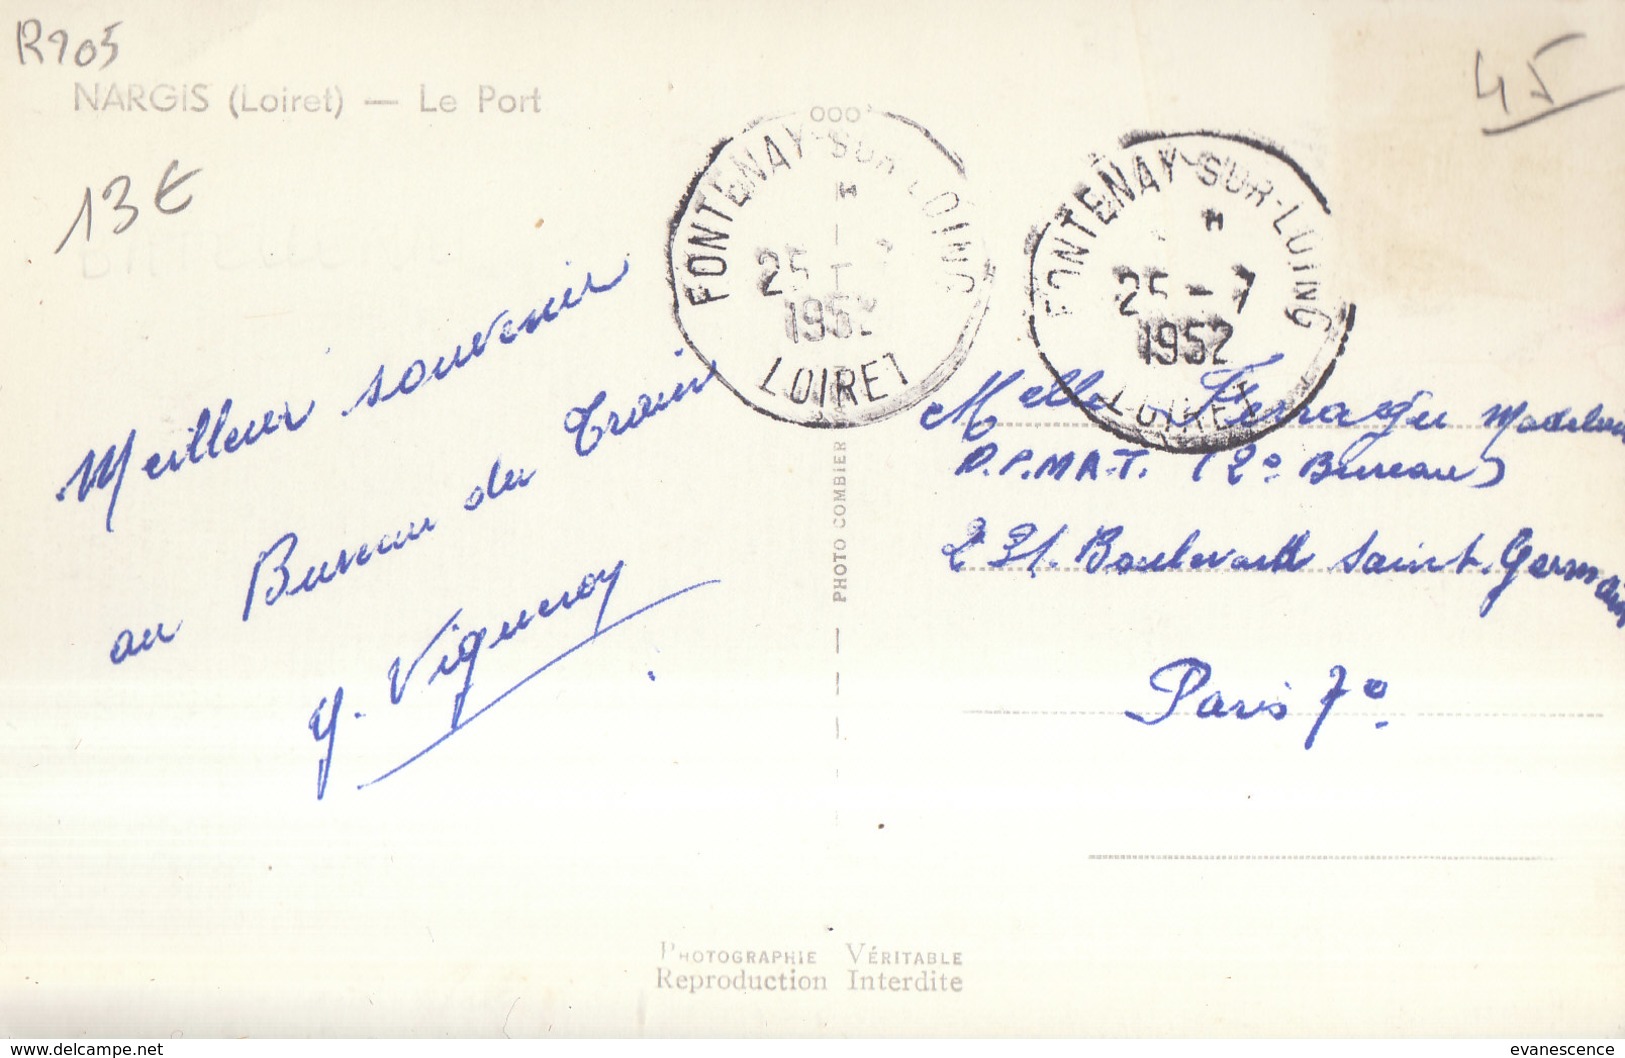 R905
NARGIS (Loiret) — Le Port
13€
45
FONTENAY-SUR-LOING
25
1952
LOIRET
FONTENAY-SUR-LOING
25 - 7
1952
LOIRET
Meilleur souvenir
au Bureau du Train
y. Vigneroy
PHOTO COMBIER
Melle Ferragu
D.P.M.A.T. (2º Bureau)
231. Boulevard Saint. Germain
Paris 7º.
PHOTOGRAPHIE VÉRITABLE
Reproduction Interdite
www.delcampe.net
evanescence